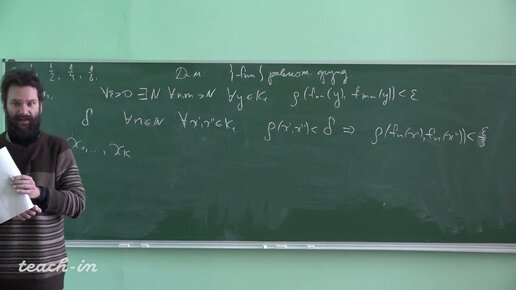 1/2, 1/4, 1/8. Д-м {fm} равном. фунд
∀ε>0 ∃N ∀n,m>N ∀y∈K₁ ρ(fn(y), fm(y))<ε
δ ∀n∈ℕ ∀x',x''∈K₁ ρ(x',x'')<δ ⇒ ρ(fn(x'),fn(x''))<ε/3
x₁,...,xK
teach-in